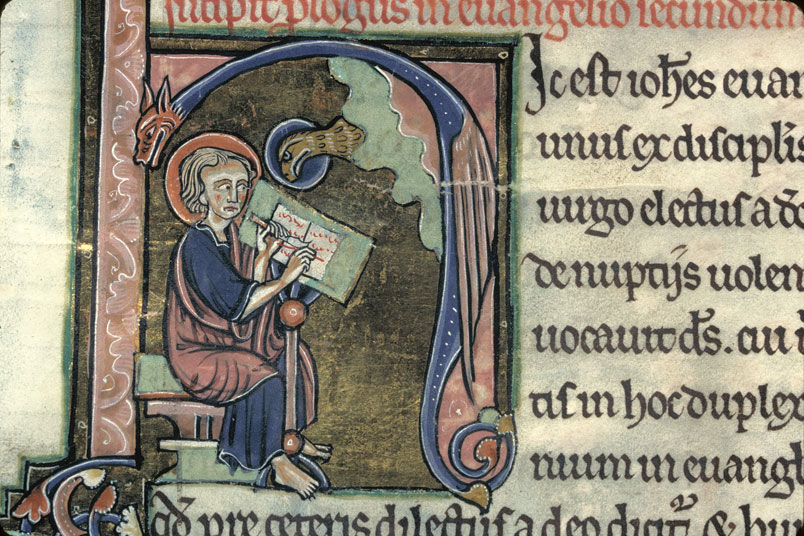 Incipit plogus in euangelio secundum
Hic est ioh̅es euan
unus ex discipl̅is
uirgo electus a d̅o
de nuptijs uolen
uocauit d̅s. cui
tis in hoc duplex
nium in euangl
qd̅ pre ceteris dilectus a deo dicit᷑ & hui